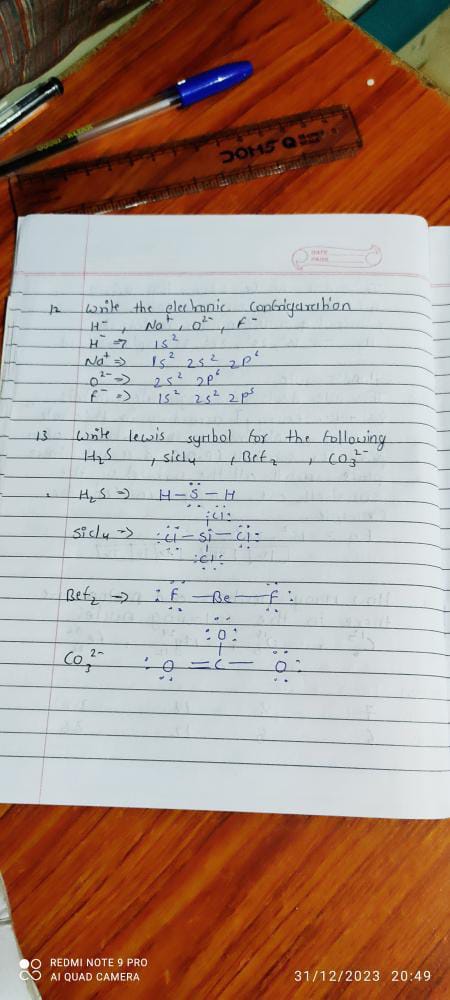 DOMS
DATE
PAGE
12 Write the electronic configuration
H⁻ , Na⁺ , O²⁻ , F⁻
H⁻ ⇒ 1s²
Na⁺ ⇒ 1s² 2s² 2p⁶
O²⁻ ⇒ 2s² 2p⁶
F⁻ ⇒ 1s² 2s² 2p⁵
13 Write lewis symbol for the following
H₂S , sicl₄ , Bef₂ , CO₃²⁻
H₂S ⇒ H – S – H
:Cl:
Sicl₄ → :Cl – Si – Cl:
:Cl:
Bef₂ → :F – Be – F:
:O:
CO₃²⁻ :O = C – O:
REDMI NOTE 9 PRO
AI QUAD CAMERA
31/12/2023 20:49